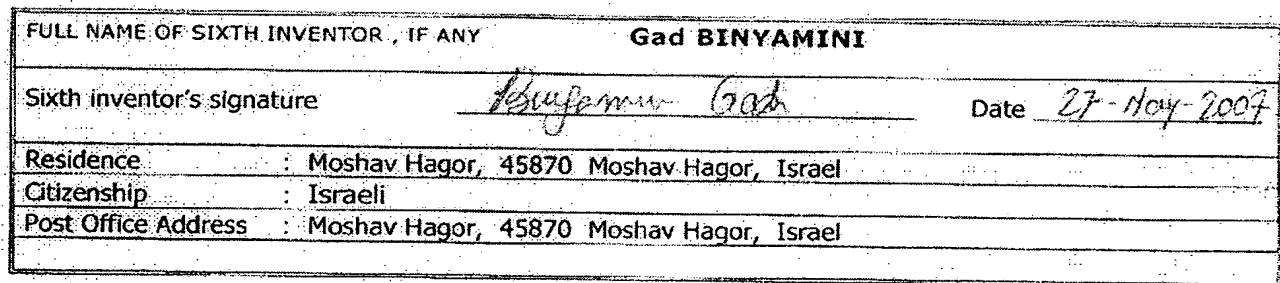 FULL NAME OF SIXTH INVENTOR , IF ANY Gad BINYAMINI
Sixth inventor's signature Binyamini Gad Date 27-Nov-2007
Residence : Moshav Hagor, 45870 Moshav Hagor, Israel
Citizenship : Israeli
Post Office Address : Moshav Hagor, 45870 Moshav Hagor, Israel